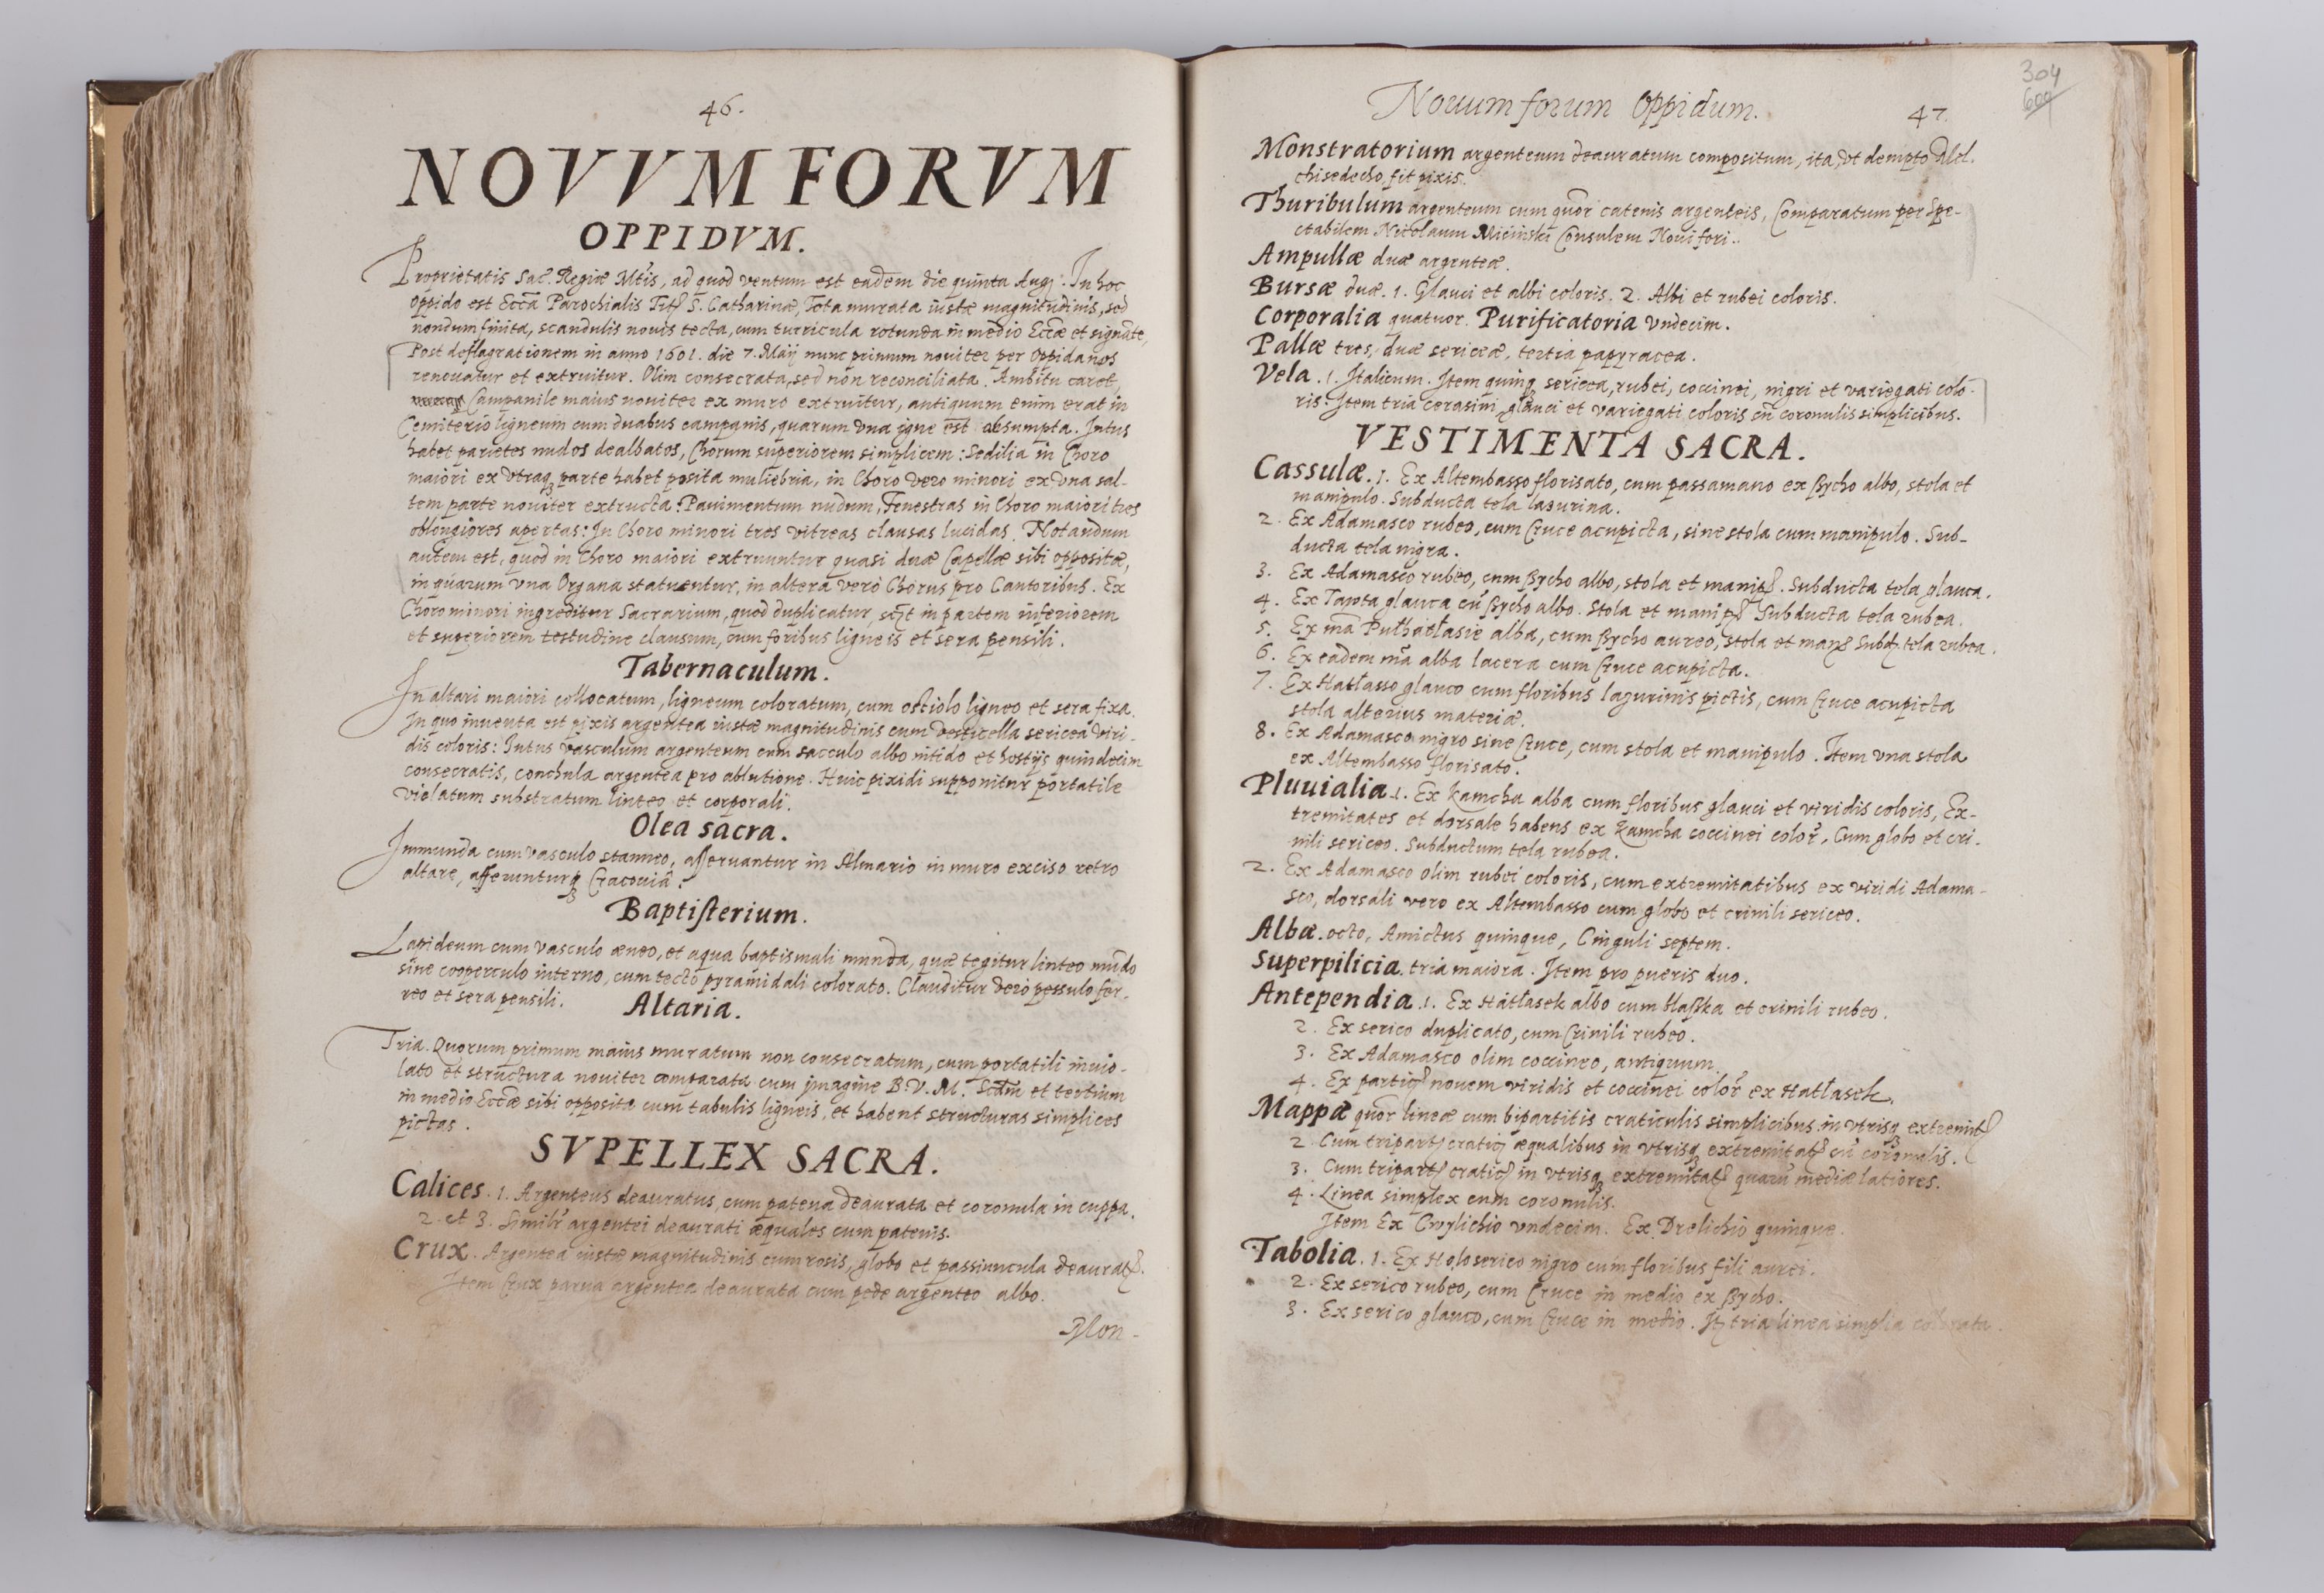 46.
NOVVM FORVM
OPPIDVM.
Proprietatis Sac. Regiæ Mtis, ad quod ventum est eadem die quinta Aug: In hoc
oppido est Eccã Parochialis Tit S. Catharinæ, Tota murata iustæ magnitudinis, sed
nondum finita, scandulis nouis tecta, cum turricula rotunda in medio Eccæ et signãte,
Post deflagrationem in anno 1601. die 7. Maij nunc primum nouiter per oppidanos
renouatur et extruitur. Olim consecrata, sed non reconciliata. Ambitu caret,
Campanile maius nouiter ex muro extruitur, antiquum enim erat in
Cemiterio ligneum cum duabus campanis, quarum vna igne est absumpta. Intus
habet parietes nudos dealbatos, Chorum superiorem simplicem: Sedilia in Choro
maiori ex vtraq parte habet posita muliebria, in Choro vero minori ex vna sal-
tem parte nouiter extructa: Pauimentum nudum, Fenestras in Choro maiori tres
oblongiores apertas: In Choro minori tres vitreas clausas lucidas. Notandum
autem est, quod in Choro maiori extruuntur quasi duæ Capellæ sibi oppositæ,
in quarum vna Organa statuentur, in altera verò Chorus pro Cantoribus. Ex
Choro minori ingreditur Sacrarium, quod duplicatur, scz̃t in partem inferiorem
et superiorem testudine clausum, cum foribus ligneis et sera pensili.
Tabernaculum.
In altari maiori collocatum, ligneum coloratum, cum ostiolo ligneo et sera fixa.
In quo inuenta est pixis argentea iustæ magnitudinis cum vesticella sericea viri-
dis coloris: Intus vasculum argenteum cum sacculo albo nitido et hostijs quindecim
consecratis, conchula argentea pro ablutione. Huic pixidi supponitur portatile
violatum substratum linteo et corporali.
Olea sacra.
Immunda cum vasculo stanneo, asseruantur in Almario in muro exciso retro
altare, afferunturq Cracouiâ.
Baptisterium.
Lapideum cum vasculo æneo, et aqua baptismali munda, quæ tegitur linteo mũdo
sine cooperculo interno, cum tecto pyramidali colorato. Clauditur vero pessulo fer-
reo et sera pensili.
Altaria.
Tria. Quorum primum maius muratum non consecratum, cum portatili inuio-
lato et structura nouiter comparata cum imagine B.V.M. Scdm et tertium
in medio Eccæ sibi opposita cum tabulis ligneis, et habent structuras simplices
pictas.
SVPELLEX SACRA.
Calices. 1. Argenteus deauratus, cum patena deaurata et coronula in cuppa.
2. et 3. Similr argentei deaurati æquales cum patenis.
Crux. Argentea iustæ magnitudinis cum rosis, globo et passiuncula deaurat.
Item Crux parua argentea deaurata cum pede argenteo albo.
Mon-
Nouum forum Oppidum.
47.
304
Monstratorium argenteum deauratum compositum, ita, vt dempto Mel.
chisedecho, fit pixis.
Thuribulum argenteum cum quor catenis argenteis, Comparatum per Spe-
ctabilem Nicolaum Miciński Consulem Noui fori.
Ampullæ duæ argenteæ.
Bursæ duæ. 1. Glauci et albi coloris. 2. Albi et rubei coloris.
Corporalia quatuor. Purificatoria vndecim.
Pallæ tres, duæ sericeæ, tertia papyracea.
Vela. 1. Italicum. Item quinq sericea, rubei, coccinei, nigri et variegati colo-
ris. Item tria cerasini, glauci et variegati coloris cũ coronulis simplicibus.
VESTIMENTA SACRA.
Cassulæ. 1. Ex Altembasso florisato, cum passamano ex ßycho albo, stola et
manipulo. Subducta tela lazurina.
2. Ex Adamasco rubeo, cum Cruce acupicta, sine stola cum manipulo. Sub-
ducta tela nigra.
3. Ex Adamasco rubeo, cum ßycho albo, stola et manip. Subducta tela glauca.
4. Ex Tawta glauca cũ ßycho albo. Stola et manip Subducta tela rubea.
5. Ex mã Puthatłasie alba, cum ßycho aureo, stola et man Subd. tela rubea.
6. Ex eadem mã alba lacera cum Cruce acupicta.
7. Ex Hatłasso glauco cum floribus lazurinis pictis, cum Cruce acupicta
stola alterius materiæ.
8. Ex Adamasco nigro sine Cruce, cum stola et manipulo. Item vna stola
ex Altembasso florisato.
Pluuialia. 1. Ex Kamcha alba cum floribus glauci et viridis coloris, Ex-
tremitates et dorsale habens ex Kamcha coccinei color, Cum globo et cri-
nili sericeo. Subductum tela rubea.
2. Ex Adamasco olim rubei coloris, cum extremitatibus ex viridi Adama-
sco, dorsali vero ex Altembasso cum globo et crinili sericeo.
Albæ. octo, Amictus quinque, Cinguli septem.
Superpilicia. tria maiora. Item pro pueris duo.
Antependia. 1. Ex Hatłasek albo cum tlaßka et crinili rubeo.
2. Ex serico duplicato, cum Crinili rubeo.
3. Ex Adamasco olim coccineo, antiquum.
4. Ex partic nouem viridis et coccinei color ex Hatłasek.
Mappæ quor lineæ cum bipartitis craticulis simplicibus in vtrisq extremit
2. Cum tripart cratic æqualibus in vtrisq extremitat cũ coronulis.
3. Cum tripart cratic in vtrisq extremitat quarũ mediæ latiores.
4. Linea simplex cum coronulis.
Item Ex Cwylichio vndecim. Ex Drelichio quinque.
Tabolia. 1. Ex Holoserico nigro cum floribus fili aurei.
2. Ex serico rubeo, cum Cruce in medio ex ßycho.
3. Ex serico glauco, cum Cruce in medio. It tria linea simplia